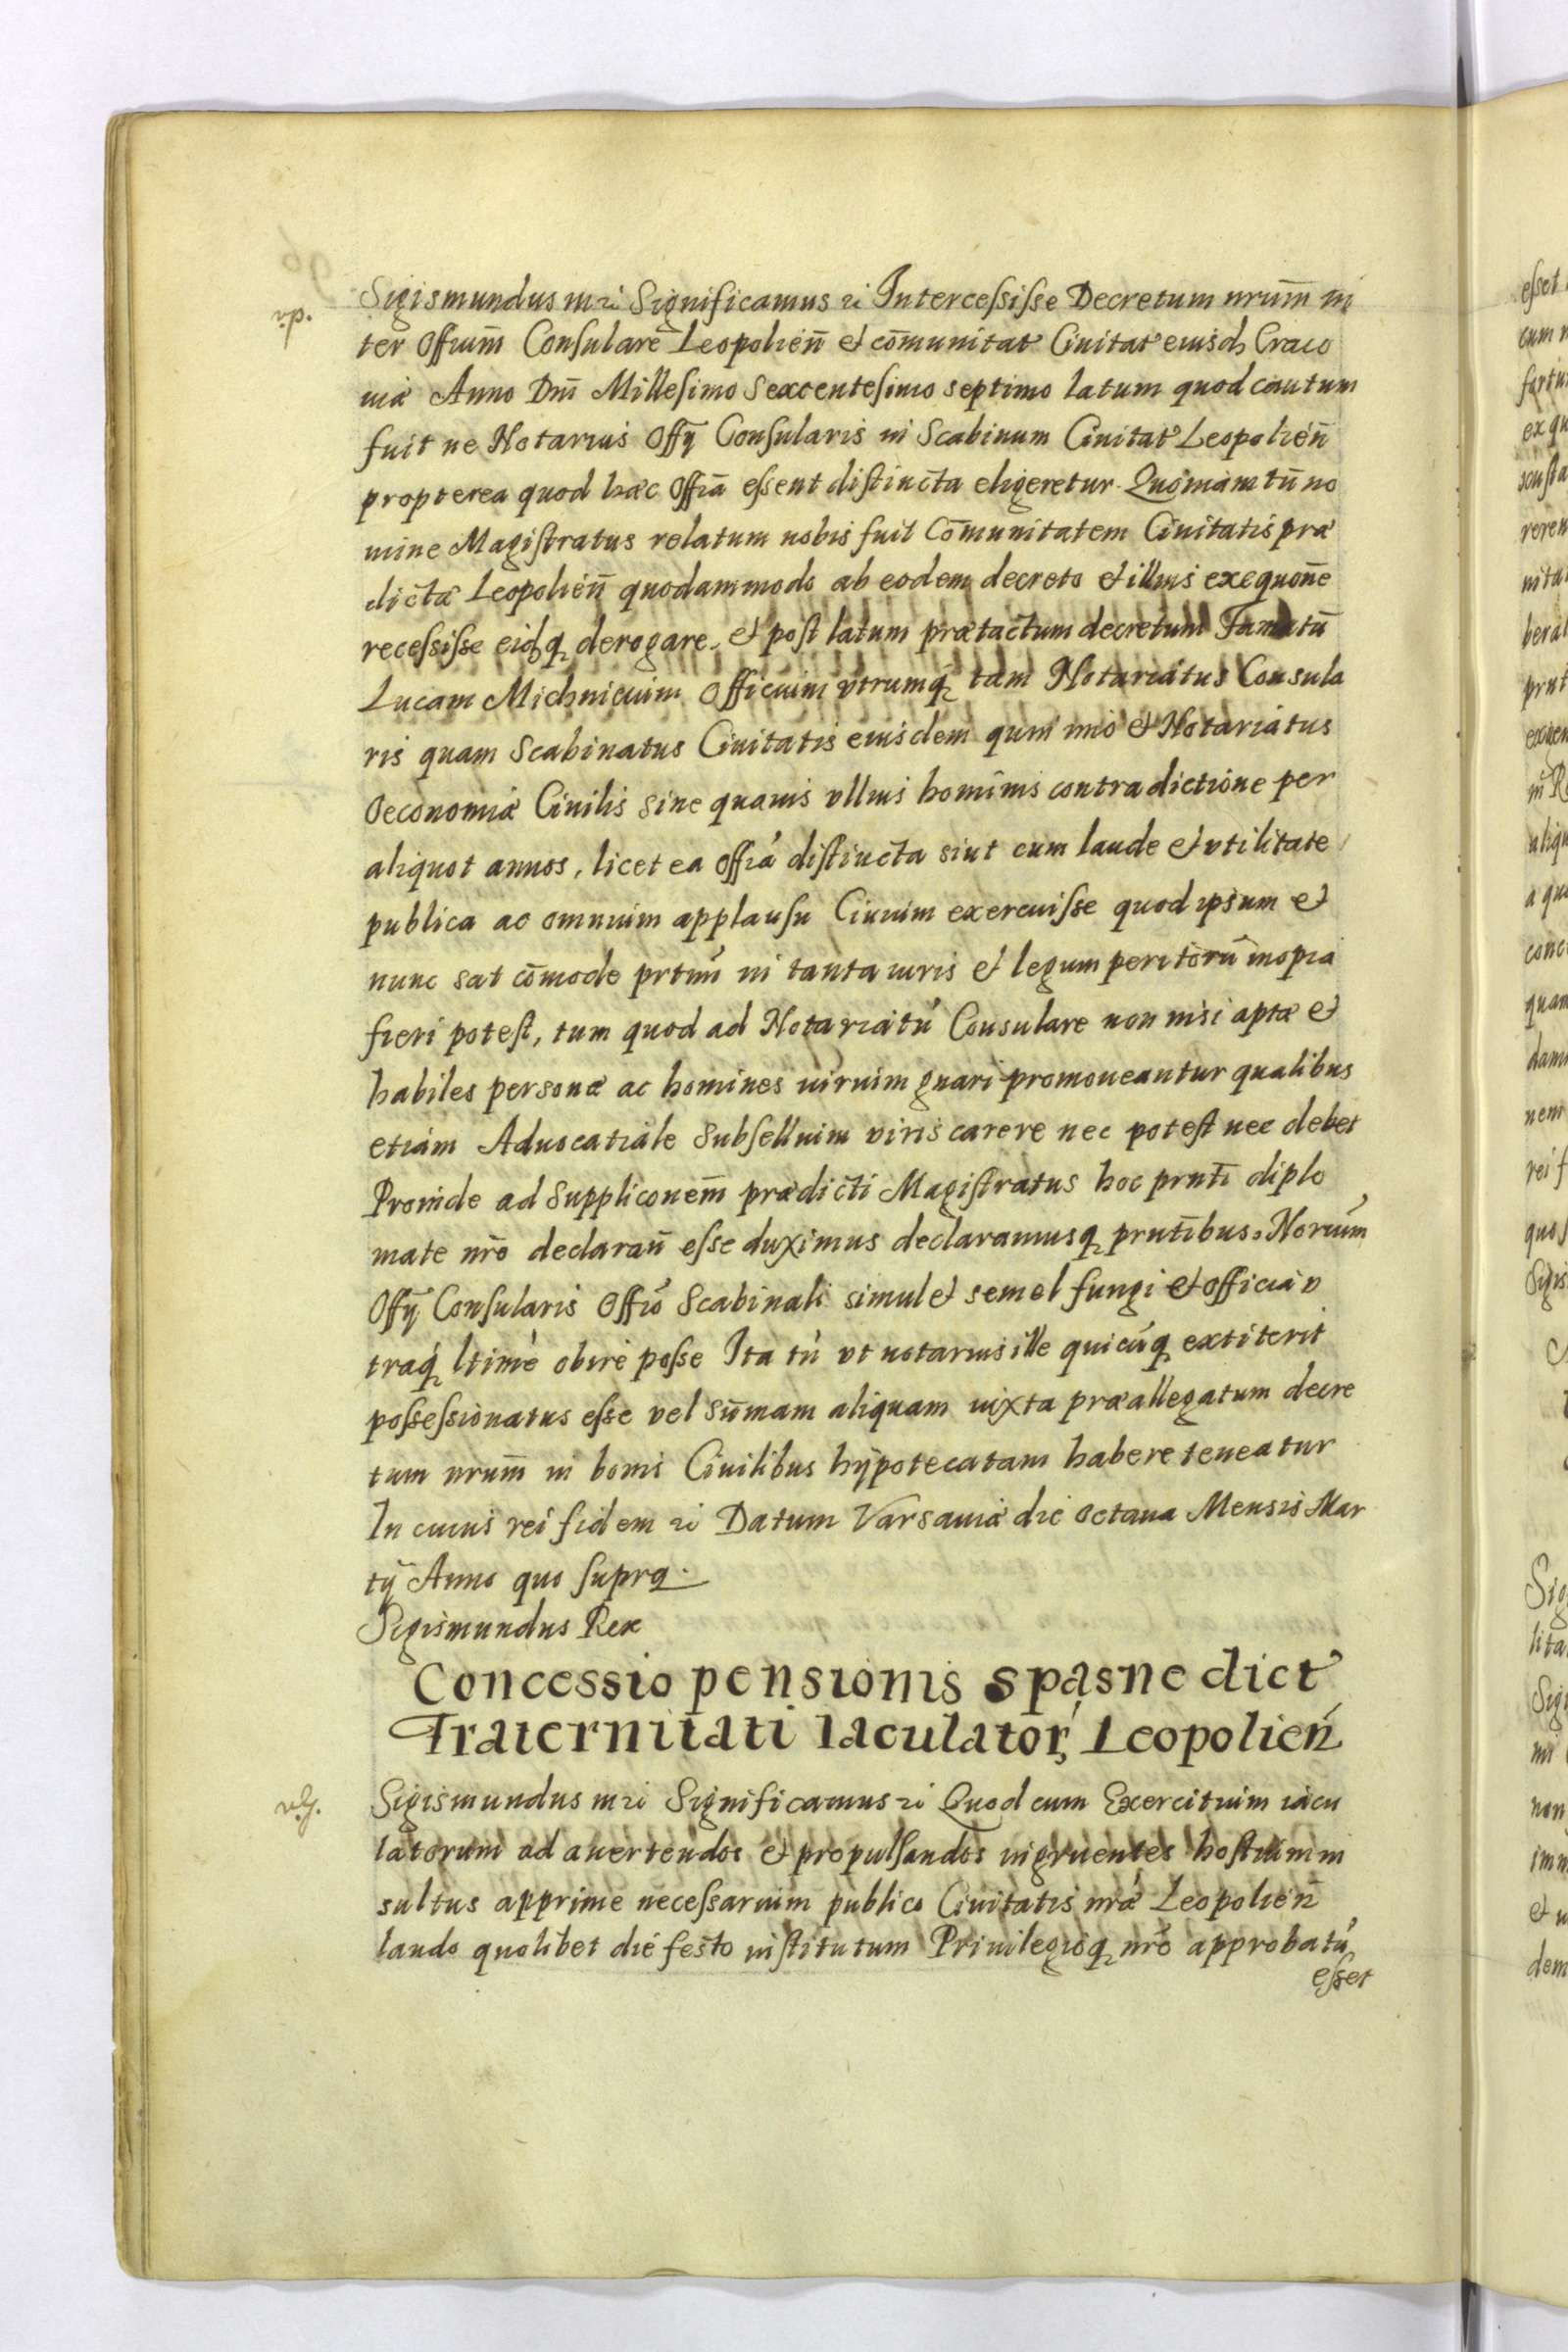 Sigismundus III &c Significamus &c Intercessisse Decretum nrum̄ in
ter Offium̄ Consulare Leopolien̄ et com̄unitat Ciuitat eiusd Craco
uiæ Anno Dnī Millesimo Sexcentesimo septimo latum quod cautum
fuit ne Notarius Offÿ Consularis in Scabinum Ciuitat Leopolien̄
propterea quod hæc Offia essent distincta eligeretur. Quoniam tn̄ no
mine Magistratus relatum nobis fuit Com̄unitatem Ciuitatis præ
dictæ Leopolien̄ quodammodo ab eodem decreto et illius exequōne
recessisse eidq derogare. et post latum prætactum decretum Famatū
Lucam Michnicium Officium vtrumq tam Notariatus Consula
ris quam Scabinatus Ciuitatis eiusdem quin imo et Notariatus
Oeconomiæ Ciuilis sine quauis vllius hominis contradictione per
aliquot annos, licet ea offia distincta sint cum laude et vtilitate
publica ac omnium applausu Ciuium exercuisse quod ipsum et
nunc sat com̄ode prtim in tanta iuris et legum peritorū inopia
fieri potest, tum quod ad Notariatū Consulare non nisi aptæ et
habiles personæ ac homines iurium gnari promoueantur qualibus
etiam Aduocatiale Subsellium viris carere nec potest nec debet
Proinde ad Supplicōnem̄ prædicti Magistratus hoc prntī diplo
mate nrō declaran̄ esse duximus declaramusq prntībus. Norium
Offÿ Consularis Offio Scabinali simul et semel fungi et officia v
traq ltime obire posse Ita tn̄ vt notarius ille quicūq extiterit
possessionatus esse vel sum̄am aliquam iuxta præallegatum decre
tum nrum̄ in bonis Ciuilibus hÿpotecatam habere teneatur
In cuius rei fidem &c Datum Varsauiæ die octaua Mensis Mar
tÿ Anno quo supra.
Sigismundus Rex
Concessio pensionis spasne dict
Fraternitati Iaculator Leopolien
Sigismundus III &c Significamus &c Quod cum Exercitium iacu
latorum ad auertendos et propulsandos ingruentes hostium in
sultus apprime necessarium publico Ciuitatis nræ Leopolien̄
laudo quolibet die festo institutum Priuilegioq nrō approbatū
esset